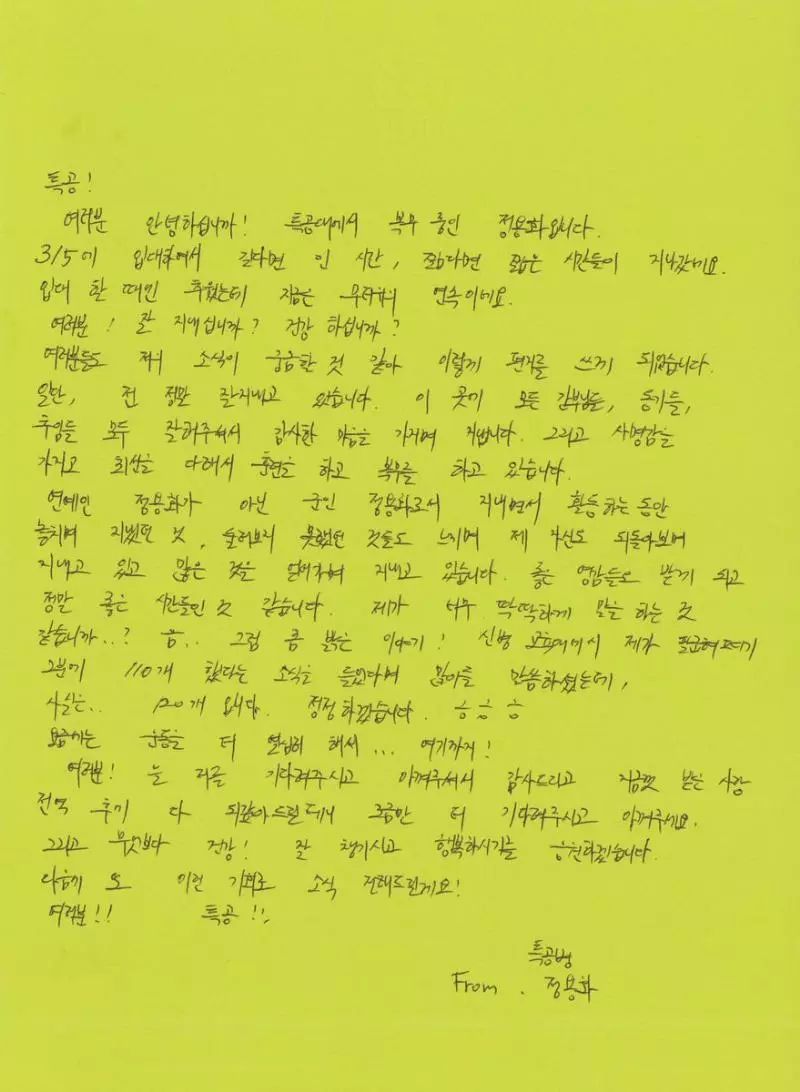 특공!
여러분 안녕하십니까! 특공대에서 복무 중인 정용화입니다.
3/5에 입대하여서 길다면 긴 시간, 짧다면 짧은 시간들이 지나갔네요.
입대 할 때엔 추웠는데 지금은 무더위의 연속이네요.
여러분! 잘 지내십니까? 건강 하십니까?
여러분들도 저의 소식이 궁금한 것 같아 이렇게 편지를 쓰게 되었습니다.
일단, 전 정말 잘지내고 있습니다. 이 곳의 모든 간부님들, 동기들,
후임들 모두 잘해주셔서 감사한 마음을 가지며 지냅니다. 그리고 사명감을
가지고 최선을 다해서 훈련을 하고 복무를 하고 있습니다.
연예인 정용화가 아닌 군인 정용화로서 지내면서 활동하는 동안
놓치며 지냈던 것, 둘러보지 못했던 것들도 느끼며 제 자신도 되돌아보며
지내고 있고 많은 것을 얻어가며 지내고 있습니다. 좋은 영감들도 받게 되고
정말 좋은 시간들인 것 같습니다. 제가 너무 딱딱하게 말을 하는 것
같습니까..? 흠.. 그럼 좀 밝은 이야기! 신병 교육대에서 제가 팔굽혀펴기
2분에 110개 했다는 소식을 들었다며 많이들 말씀하셨는데,
사실은.. 120개 입니다. 정정하겠습니다. ㅎㅎㅎ
요즘에는 운동을 더 열심히 해서... 여기까지!
여러분! 늘 저를 기다려주시고 아껴주셔서 감사드리고 지금껏 받은 사랑
전역 후에 다 되갚아드릴테니 조금만 더 기다려주시고 아껴주세요.
그리고 무엇보다 건강! 잘 챙기시고 행복하시기를 응원하겠습니다.
다음에 또 이런 기회로 소식 전해드릴게요!
여러분!! 특공!!
특공병
From. 정용화